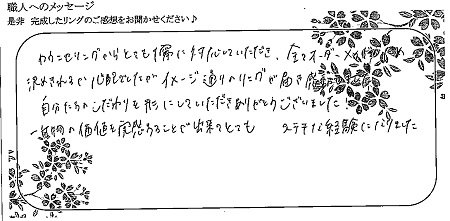 職人へのメッセージ
是非 完成したリングのご感想をお聞かせください♪
カウンセリングからとても丁寧に対応していただき、全てオーダーメイド
決めきれるか心配でしたがイメージ通りのリングが届き感
自分たちのこだわりを形にしていただきありがとうございました!
一生物の価値を実感することが出来てとても ステキな経験になりました